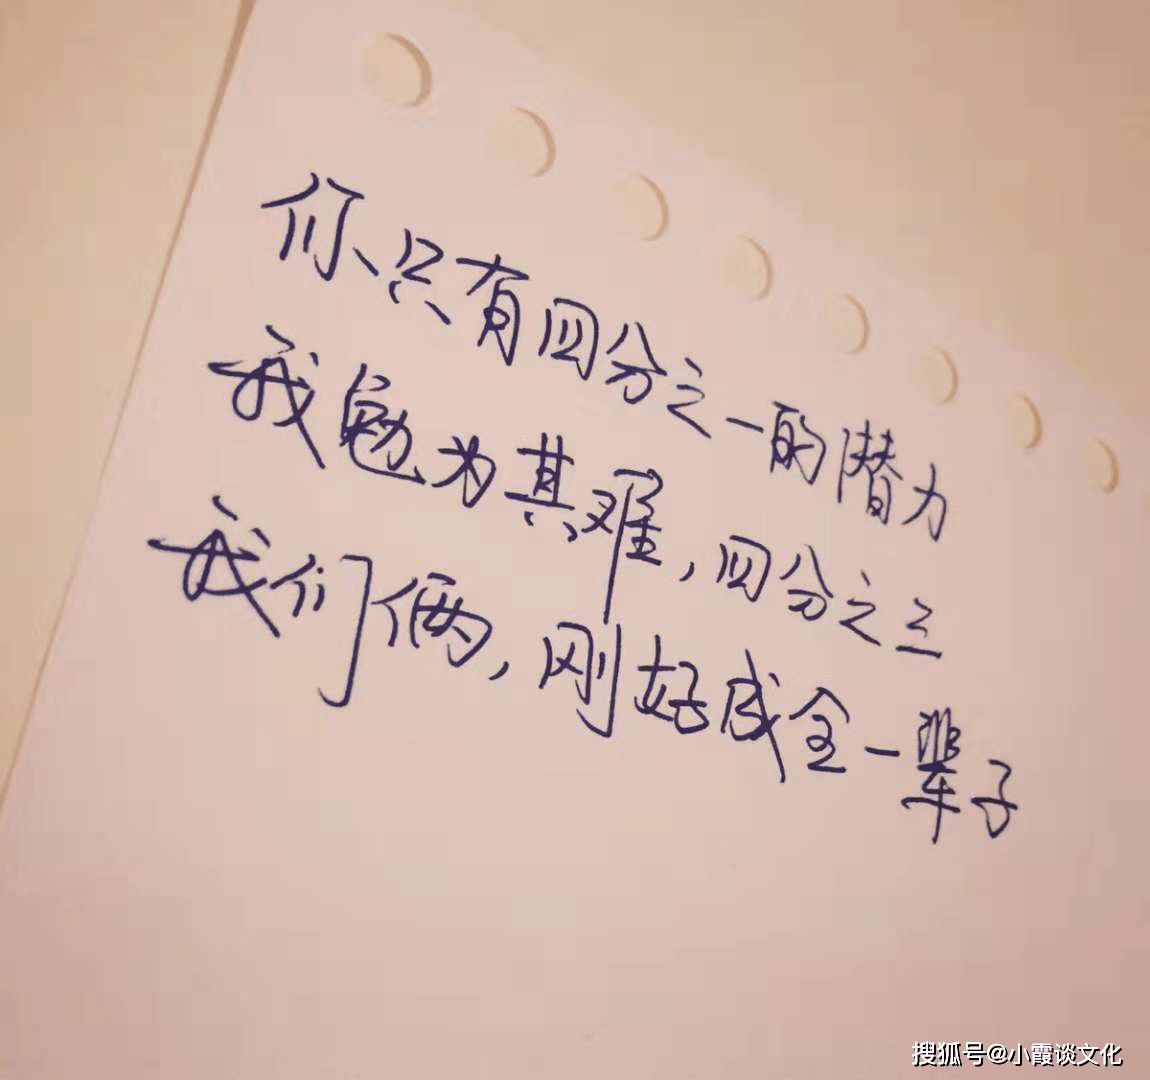 你只有四分之一的潜力
我勉为其难,四分之三
我们俩,刚好成全一辈子
搜狐号@小霞谈文化